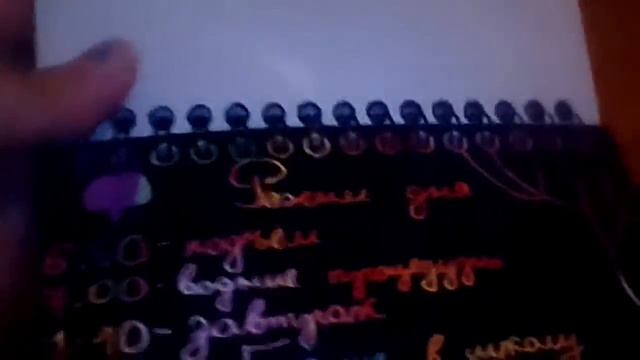 Режим дня
- подъем
7.00 - водные процедуры
7.10 - завтрак
в школу